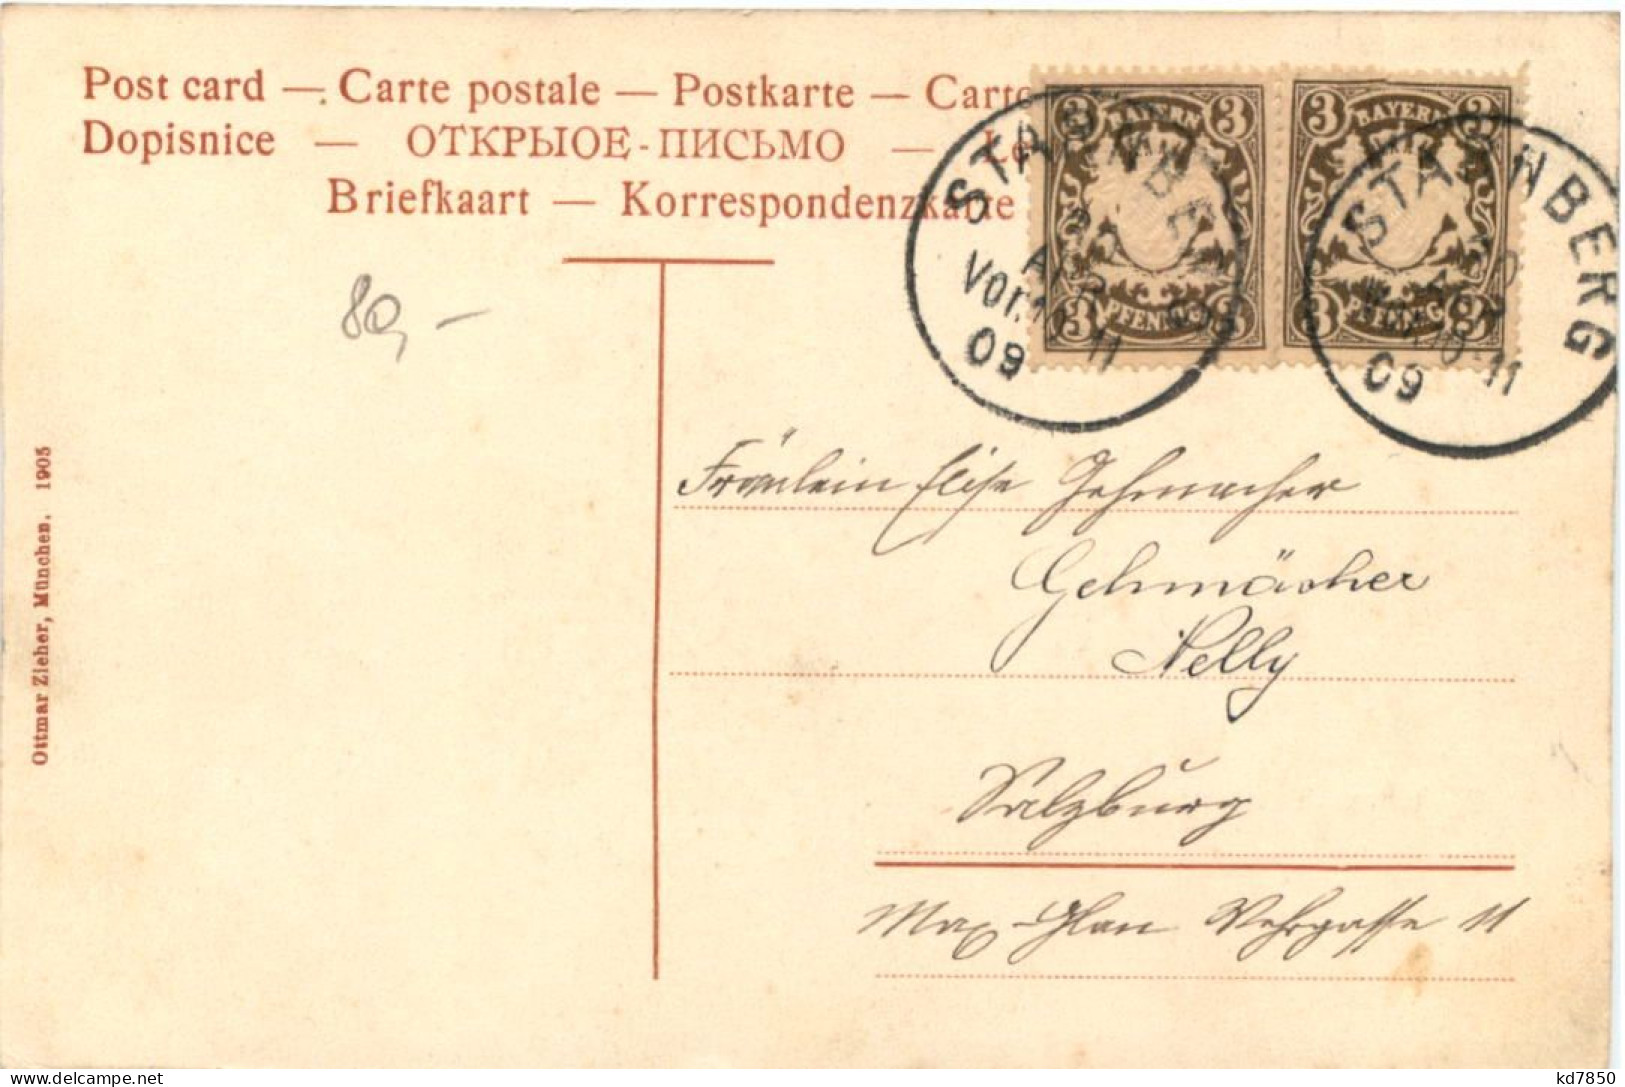 Post card — Carte postale — Postkarte — Carto
Dopisnice — ОТКРЫОЕ-ПИСЬМО —
Briefkaart — Korrespondenzkarte
BAYERN 3 3 3 3 PFENNIG
BAYERN 3 3 3 3 PFENNIG
STARNBERG
Vor. 10-11
09
STARNBERG
10-11
09
80,-
Ottmar Zieher, München. 1905
Fräulein Elise Gehmacher
Gehmächer
Nelly
Salzburg
Max-Glan 11
kd7850